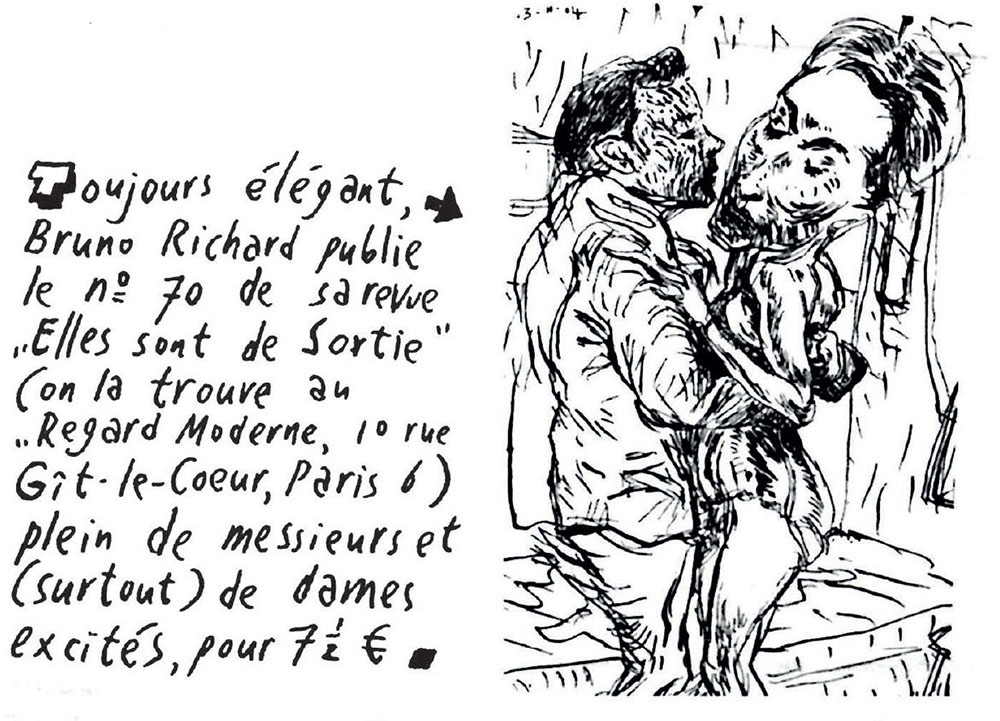 Toujours élégant,
Bruno Richard publie
le nº 70 de sa revue
„Elles sont de Sortie"
(on la trouve au
„Regard Moderne, 10 rue
Gît-le-Coeur, Paris 6)
plein de messieurs et
(surtout) de dames
excités, pour 7 ½ €
.3-11-04